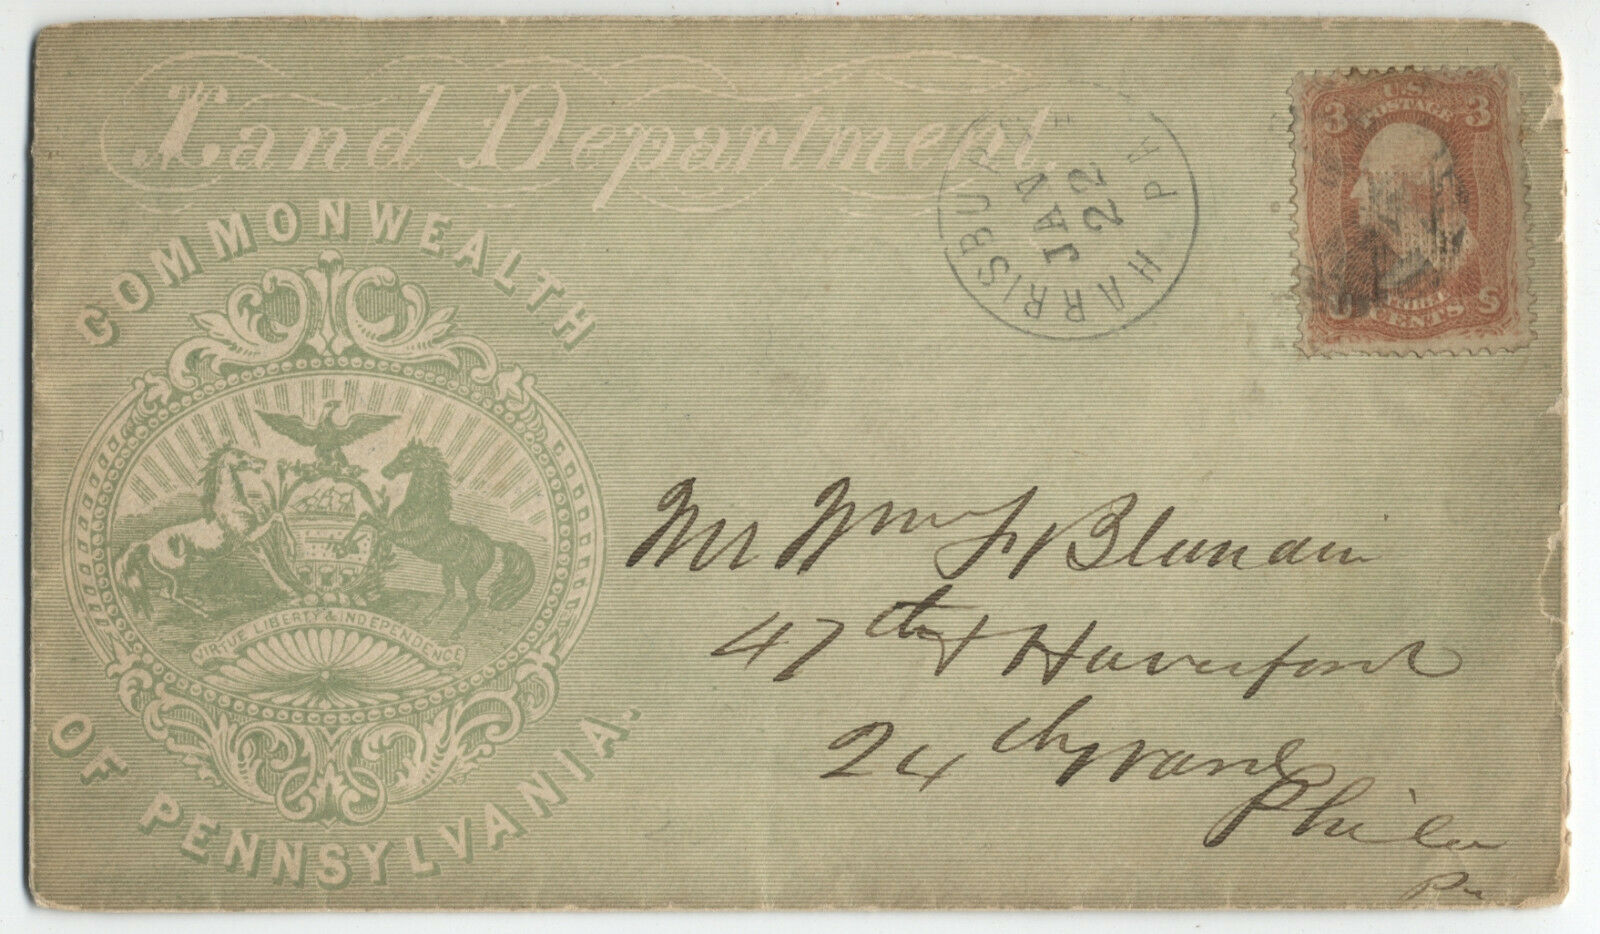 Land Department.
COMMONWEALTH
OF PENNSYLVANIA.
VIRTUE LIBERTY & INDEPENDENCE
HARRISBURG PA
JAN
22
U.S.
POSTAGE
3 3
THREE
CENTS
U S
Mr Wm F Blundin
47th & Haverford
24th Ward
Phila
Pa